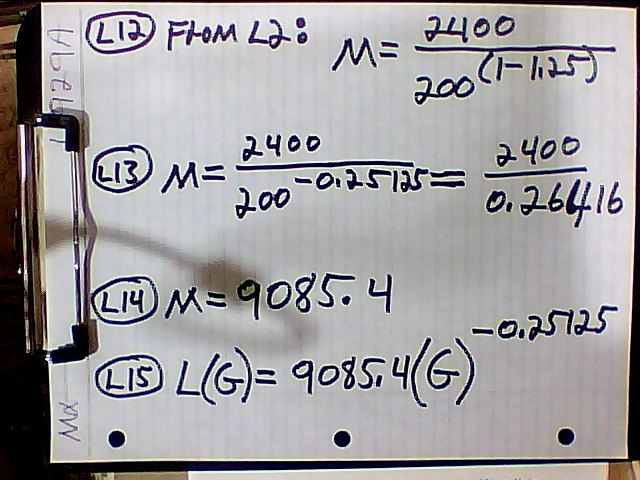 L12 From L2: M = 2400 / 200^(1-1.25)
L13 M = 2400 / 200^-0.25125 = 2400 / 0.26416
L14 M = 9085.4
L15 L(G) = 9085.4(G)^-0.25125